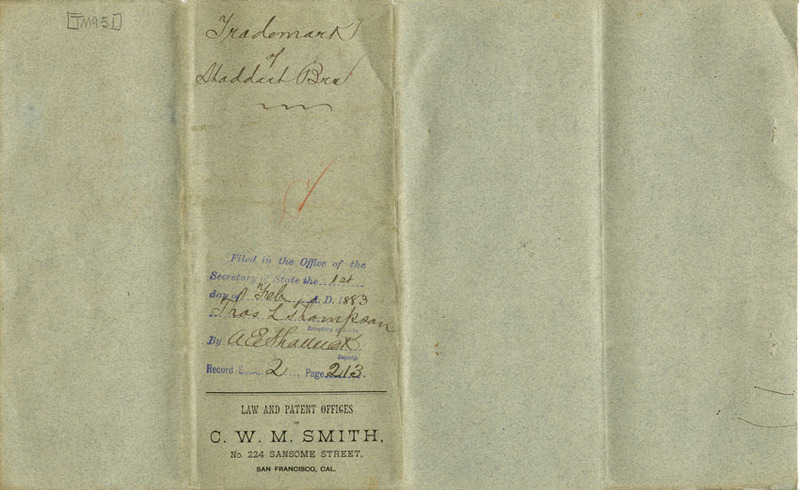 [TM951]
Trademark
of
Stoddart Bros
Filed in the Office of the
Secretary of State the 1st
day of Feb A. D. 1883
Thos L Thompson
Secretary of State.
By A E Shattuck
Deputy.
Record Book 2, Page 213.
LAW AND PATENT OFFICES
OF
C. W. M. SMITH,
No. 224 SANSOME STREET,
SAN FRANCISCO, CAL.